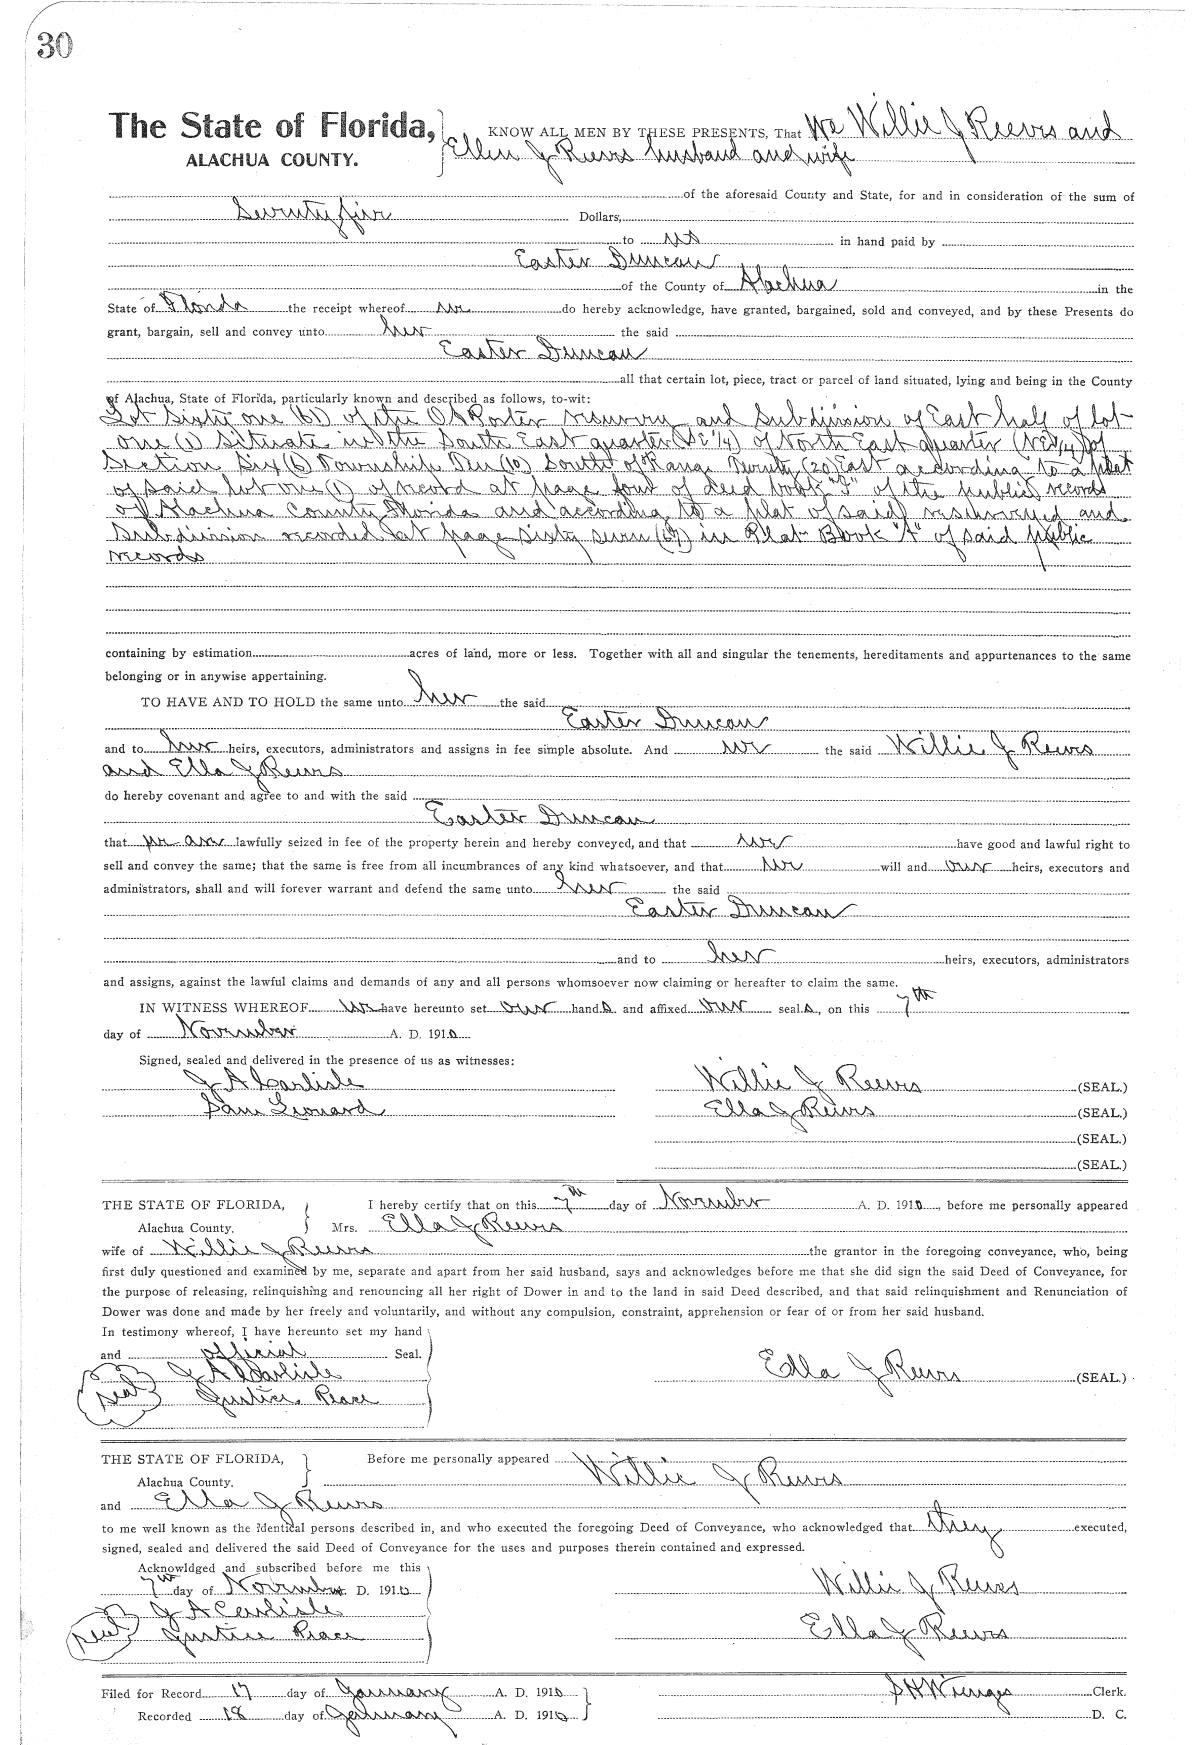 30
The State of Florida, KNOW ALL MEN BY THESE PRESENTS, That We Willie J Reeves and
ALACHUA COUNTY. Ellen J Reeves husband and wife
of the aforesaid County and State, for and in consideration of the sum of
Seventy five Dollars,
to us in hand paid by
Easter Duncan
of the County of Alachua in the
State of Florida the receipt whereof we do hereby acknowledge, have granted, bargained, sold and conveyed, and by these Presents do
grant, bargain, sell and convey unto her the said
Easter Duncan
all that certain lot, piece, tract or parcel of land situated, lying and being in the County
of Alachua, State of Florida, particularly known and described as follows, to-wit:
Lot Sixty one (61) of the O A Porter resurvey and Subdivision of East half of lot
one (1) Situate in the South East quarter (SE 1/4) of North East quarter (NE 1/4) of
Section Six (6) Township Ten (10) South of Range Twenty (20) East according to a plat
of said lot one (1) of record at page four of deed book "I" of the public records
of Alachua County Florida and according to a plat of said resurveyed and
Subdivision recorded at page Sixty seven (67) in Plat Book "A" of said public
records
containing by estimation acres of land, more or less. Together with all and singular the tenements, hereditaments and appurtenances to the same
belonging or in anywise appertaining.
TO HAVE AND TO HOLD the same unto her the said
Easter Duncan
and to her heirs, executors, administrators and assigns in fee simple absolute. And we the said Willie J Reeves
and Ella J Reeves
do hereby covenant and agree to and with the said
Easter Duncan
that we are lawfully seized in fee of the property herein and hereby conveyed, and that we have good and lawful right to
sell and convey the same; that the same is free from all incumbrances of any kind whatsoever, and that we will and our heirs, executors and
administrators, shall and will forever warrant and defend the same unto her the said
Easter Duncan
and to her heirs, executors, administrators
and assigns, against the lawful claims and demands of any and all persons whomsoever now claiming or hereafter to claim the same.
IN WITNESS WHEREOF we have hereunto set our hands and affixed our seals, on this 7th
day of November A. D. 1910
Signed, sealed and delivered in the presence of us as witnesses:
J A Carlisle Willie J Reeves (SEAL.)
Sam Leonard Ella J Reeves (SEAL.)
(SEAL.)
(SEAL.)
THE STATE OF FLORIDA, I hereby certify that on this 7th day of November A. D. 1910, before me personally appeared
Alachua County. Mrs. Ella J Reeves
wife of Willie J Reeves the grantor in the foregoing conveyance, who, being
first duly questioned and examined by me, separate and apart from her said husband, says and acknowledges before me that she did sign the said Deed of Conveyance, for
the purpose of releasing, relinquishing and renouncing all her right of Dower in and to the land in said Deed described, and that said relinquishment and Renunciation of
Dower was done and made by her freely and voluntarily, and without any compulsion, constraint, apprehension or fear of or from her said husband.
In testimony whereof, I have hereunto set my hand
and official Seal.
J A Carlisle Ella J Reeves (SEAL.)
seal Justice Peace
THE STATE OF FLORIDA, Before me personally appeared Willie J Reeves
Alachua County.
and Ella J Reeves
to me well known as the identical persons described in, and who executed the foregoing Deed of Conveyance, who acknowledged that they executed,
signed, sealed and delivered the said Deed of Conveyance for the uses and purposes therein contained and expressed.
Acknowldged and subscribed before me this
7th day of November D. 1910 Willie J Reeves
J A Carlisle
seal Justice Peace Ella J Reeves
Filed for Record 17 day of January A. D. 1910 S H Wienges Clerk.
Recorded 18 day of January A. D. 1910 D. C.